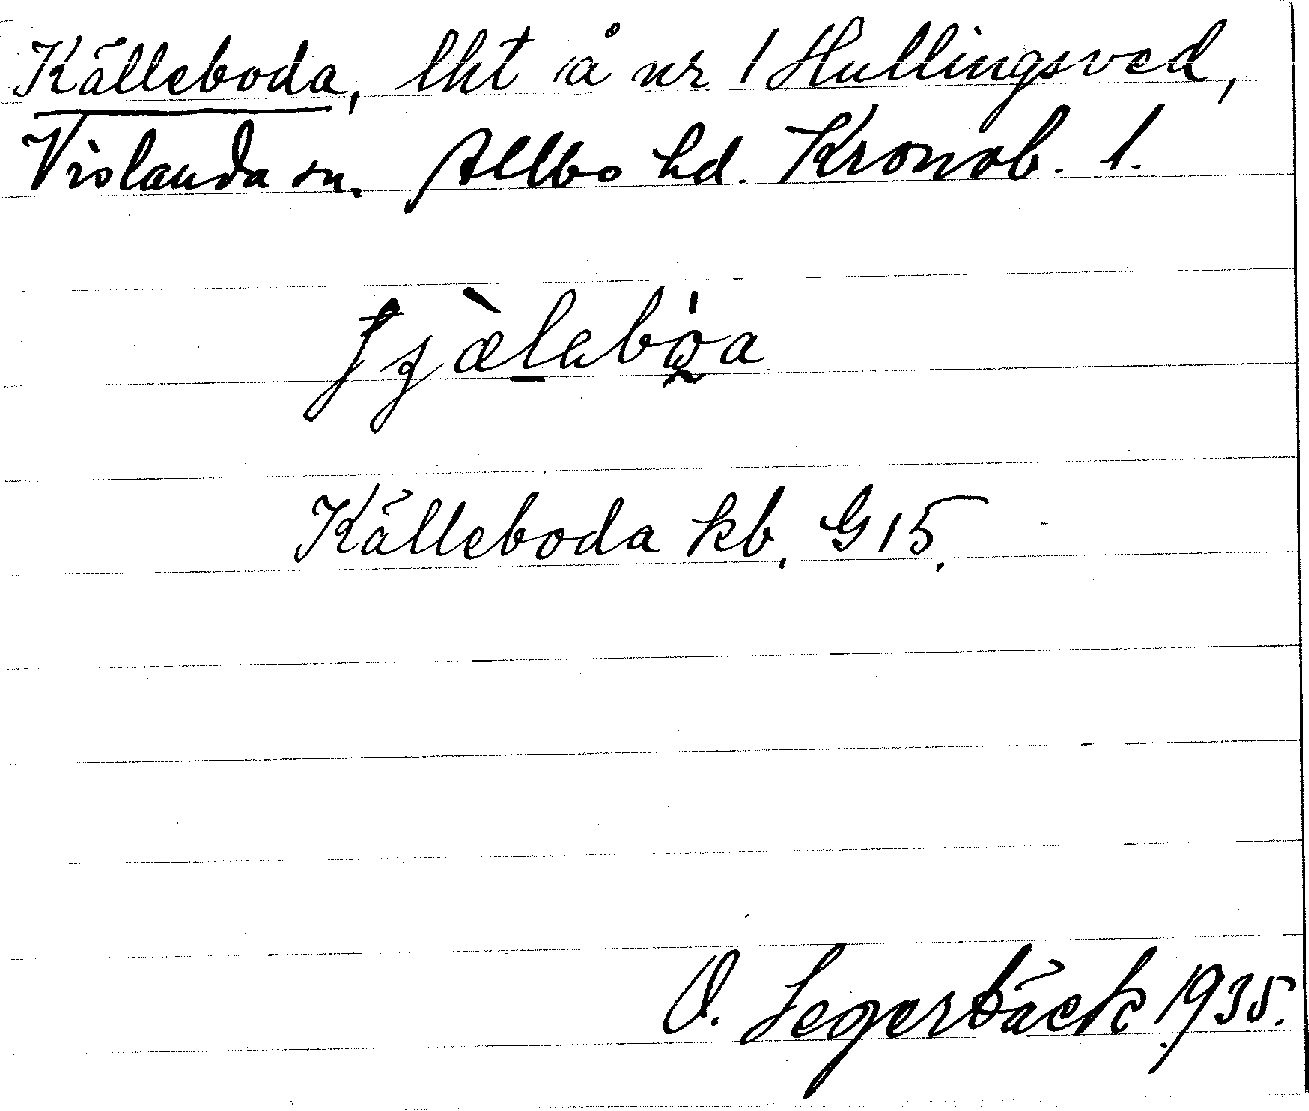 Källeboda, lht å nr 1 Hullingsved,
Vislanda sn. Allbo hd. Kronob. l.
Källeboda kb. G 15.
O. Segerbäck 1935.